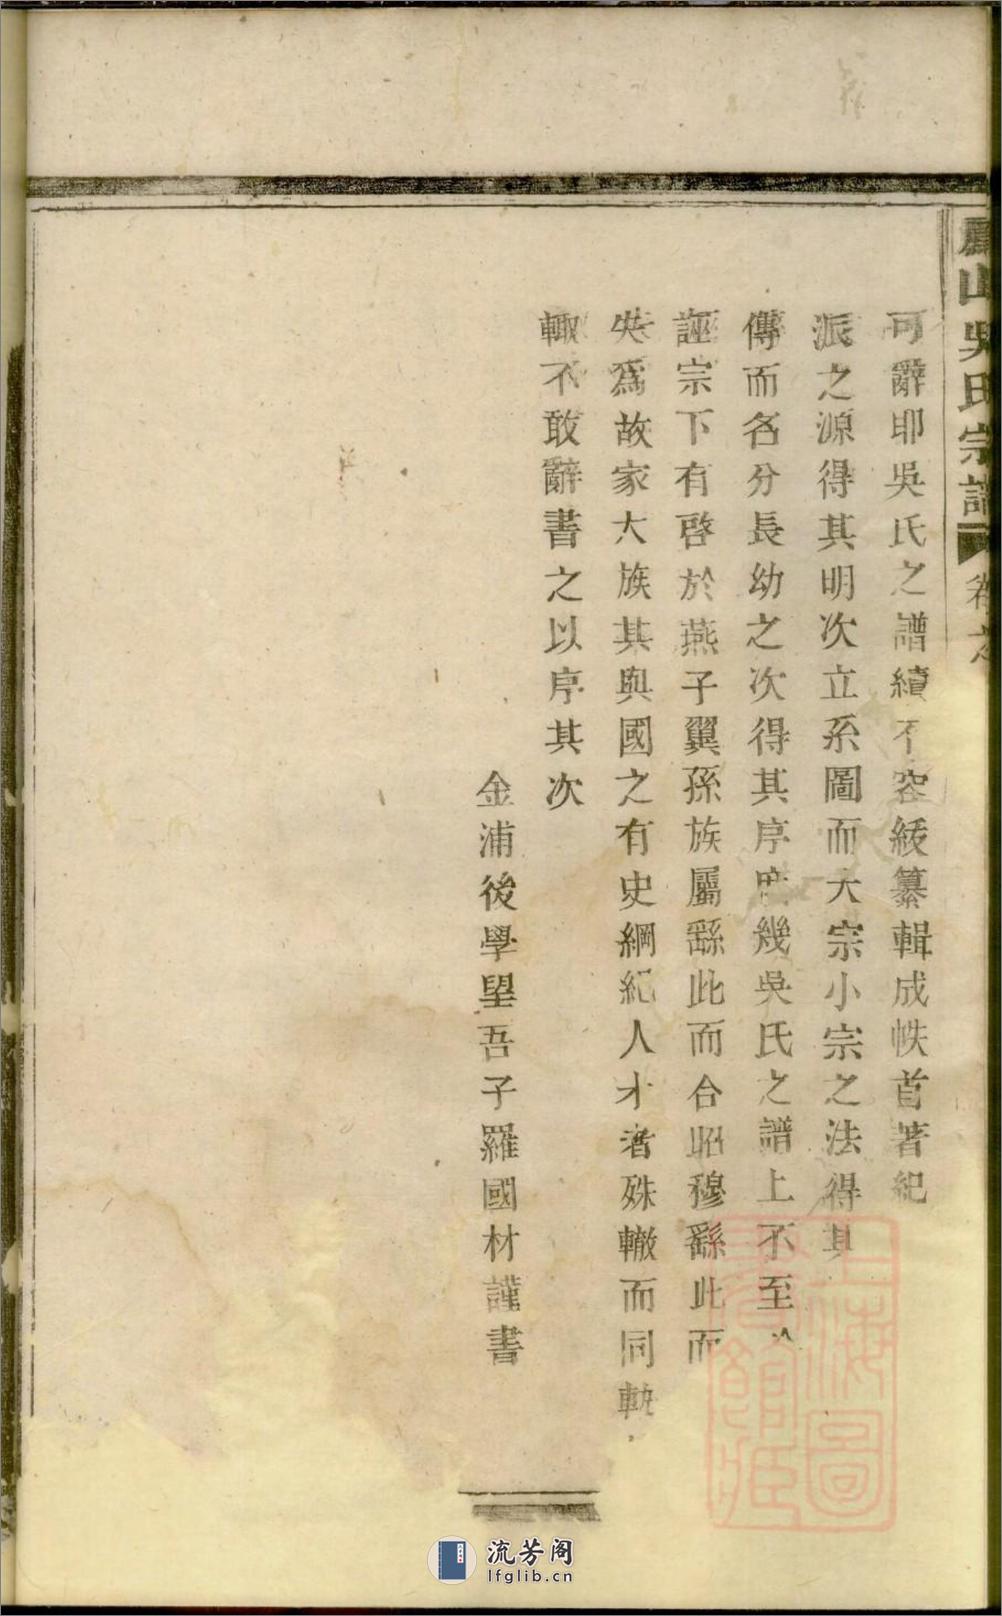 山吳氏宗譜
卷之
可辭耶吳氏之譜續不容緩纂輯成帙首著紀
派之源得其明次立系圖而大宗小宗之法得其
傳而名分長幼之次得其序庶幾吳氏之譜上不至
誣宗下有啓於燕子翼孫族屬繇此而合昭穆繇此而
失爲故家大族其與國之有史綱紀人才者殊轍而同軌
輙不敢辭書之以序其次
金浦後學望吾子羅國材謹書
上海圖書館藏
流芳阁
lfglib.cn